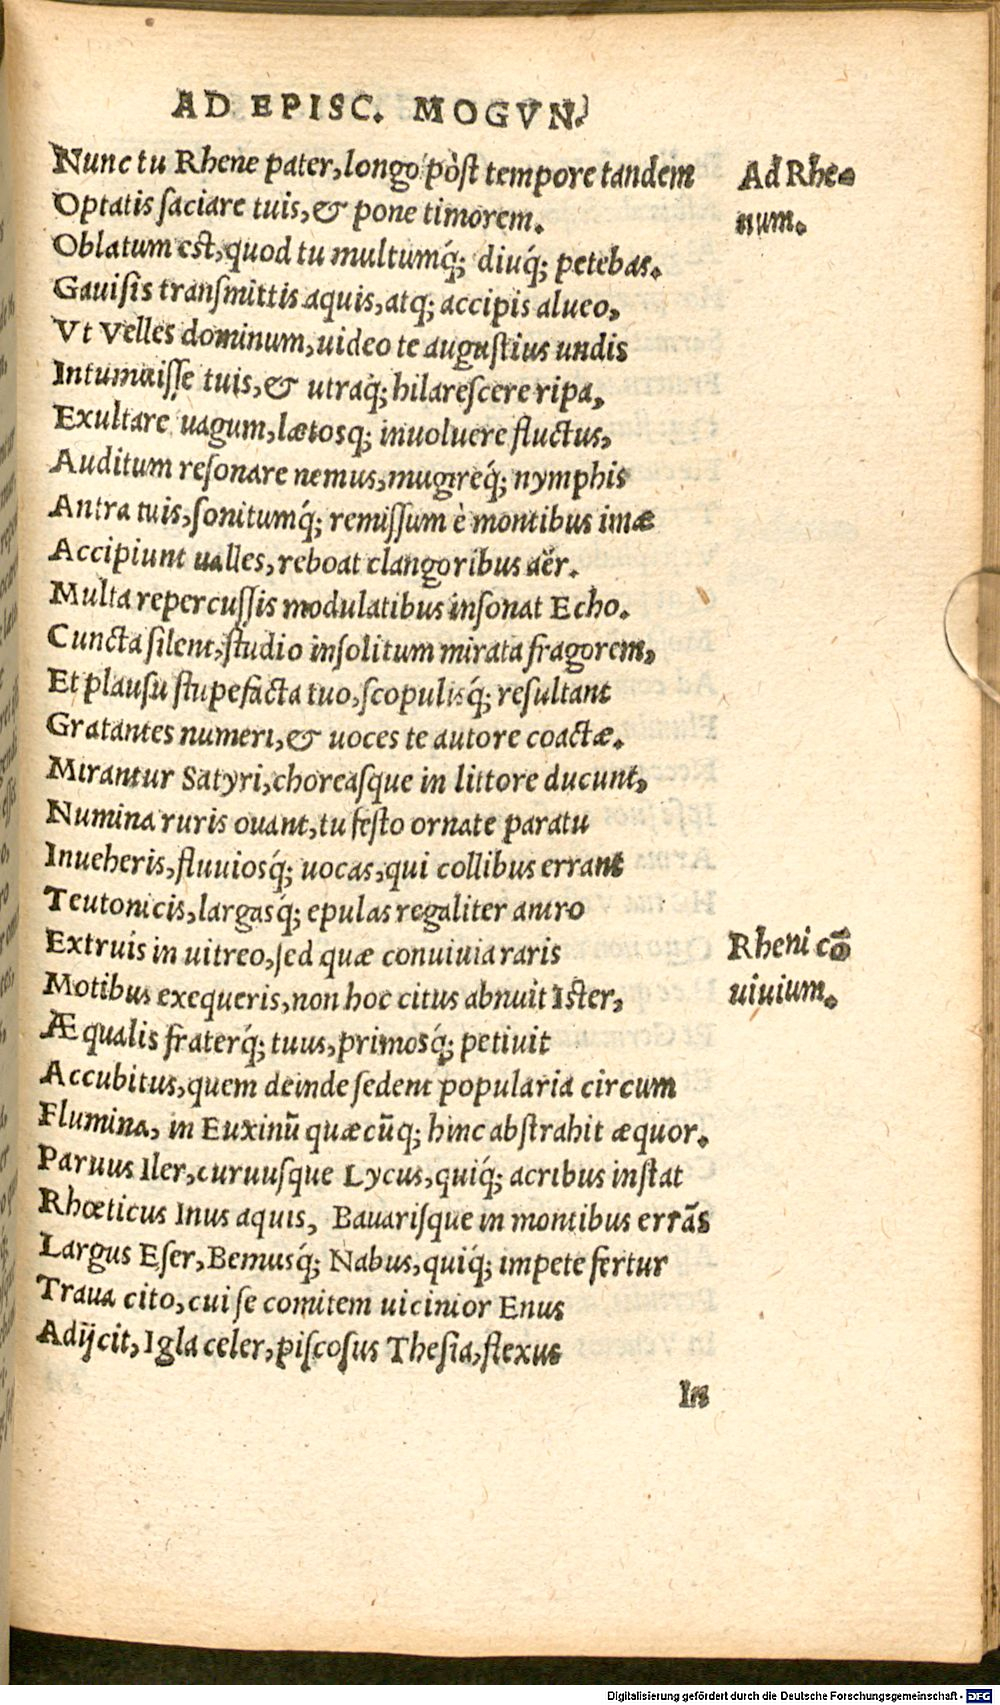 AD EPISC. MOGVN.
Nunc tu Rhene pater, longo pòst tempore tandem
Ad Rhe-
num.
Optatis saciare tuis, & pone timorem.
Oblatum est, quod tu multumq́; diuq́; petebas.
Gauisis transmittis aquis, atq; accipis alueo,
Vt Velles dominum, uideo te augustius undis
Intumuisse tuis, & utraq; hilarescere ripa,
Exultare uagum, lætosq; inuoluere fluctus,
Auditum resonare nemus, mugireq́; nymphis
Antra tuis, sonitumq́; remissum è montibus imæ
Accipiunt ualles, reboat clangoribus aër.
Multa repercussis modulatibus insonat Echo.
Cuncta silent, studio insolitum mirata fragorem,
Et plausu stupefacta tuo, scopulisq́; resultant
Gratantes numeri, & uoces te autore coactæ.
Mirantur Satyri, choreasque in littore ducunt,
Numina ruris ouant, tu festo ornate paratu
Inueheris, fluuiosq́; uocas, qui collibus errant
Teutonicis, largasq́; epulas regaliter antro
Extruis in uitreo, sed quæ conuiuia raris
Rheni cō
uiuium.
Motibus exequeris, non hoc citus abnuit Ister,
Æqualis fraterq́; tuus, primosq́; petiuit
Accubitus, quem deinde sedent popularia circum
Flumina, in Euxinū quæcūq; hinc abstrahit æquor.
Paruus Iler, curuusque Lycus, quiq́; acribus instat
Rhœticus Inus aquis, Bauarisque in montibus errās
Largus Eser, Bemusq́; Nabus, quiq́; impete fertur
Traua cito, cui se comitem uicinior Enus
Adijcit, Igla celer, piscosus Thesia, flexus
In
Digitalisierung gefördert durch die Deutsche Forschungsgemeinschaft - DFG